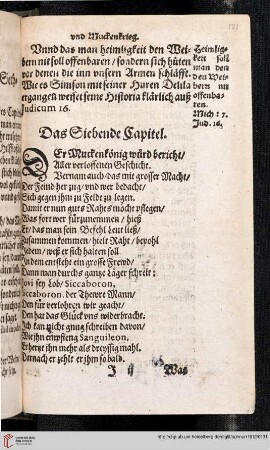 vnd Muckenkrieg.
Vnnd das man heimligkeit den Wei-
bern nit soll offenbaren / sondern sich hüten
vor denen die inn vnsern Armen schläfft.
Wie es Simson mit seiner Huren Delila
ergangen weiset seine Historia klärlich auß
Judicum 16.
Heimlig-
keit soll
man den
den Wei-
bern nit
offenba-
ren.
Mich: 7.
Jud. 16.
Das Siebende Capitel.
DEr Muckenkönig würd bericht /
Aller verloffenen Geschicht.
Vernam auch / das mit grosser Macht /
Der Feind her zug / vnd wer bedacht /
Sich gegen jhm zu Feldt zu legen.
Damit er nun guts Rahts möcht pflegen /
Was fort wer fürzunemmen / hieß
Er / das man sein Befehl leut ließ /
Zusammen kommen / hielt Raht / bevohl
Jedem / weß er sich halten soll
Jn dem entsteht ein grosse Frewd /
Dann man durchs gantze Läger schreit:
Jovi sey Lob / Siccaboron,
Siccaboron. der Thewre Mann /
Den für verlohren wir geacht /
Den hat das Glück vns widerbracht.
Jch kan nicht gnug schreiben davon /
Wie jhn empfieng Sanguileon.
Er hertzt jhn mehr als dreyssig mahl.
Darnach er zehlt er jhm so bald.
J ij
Was